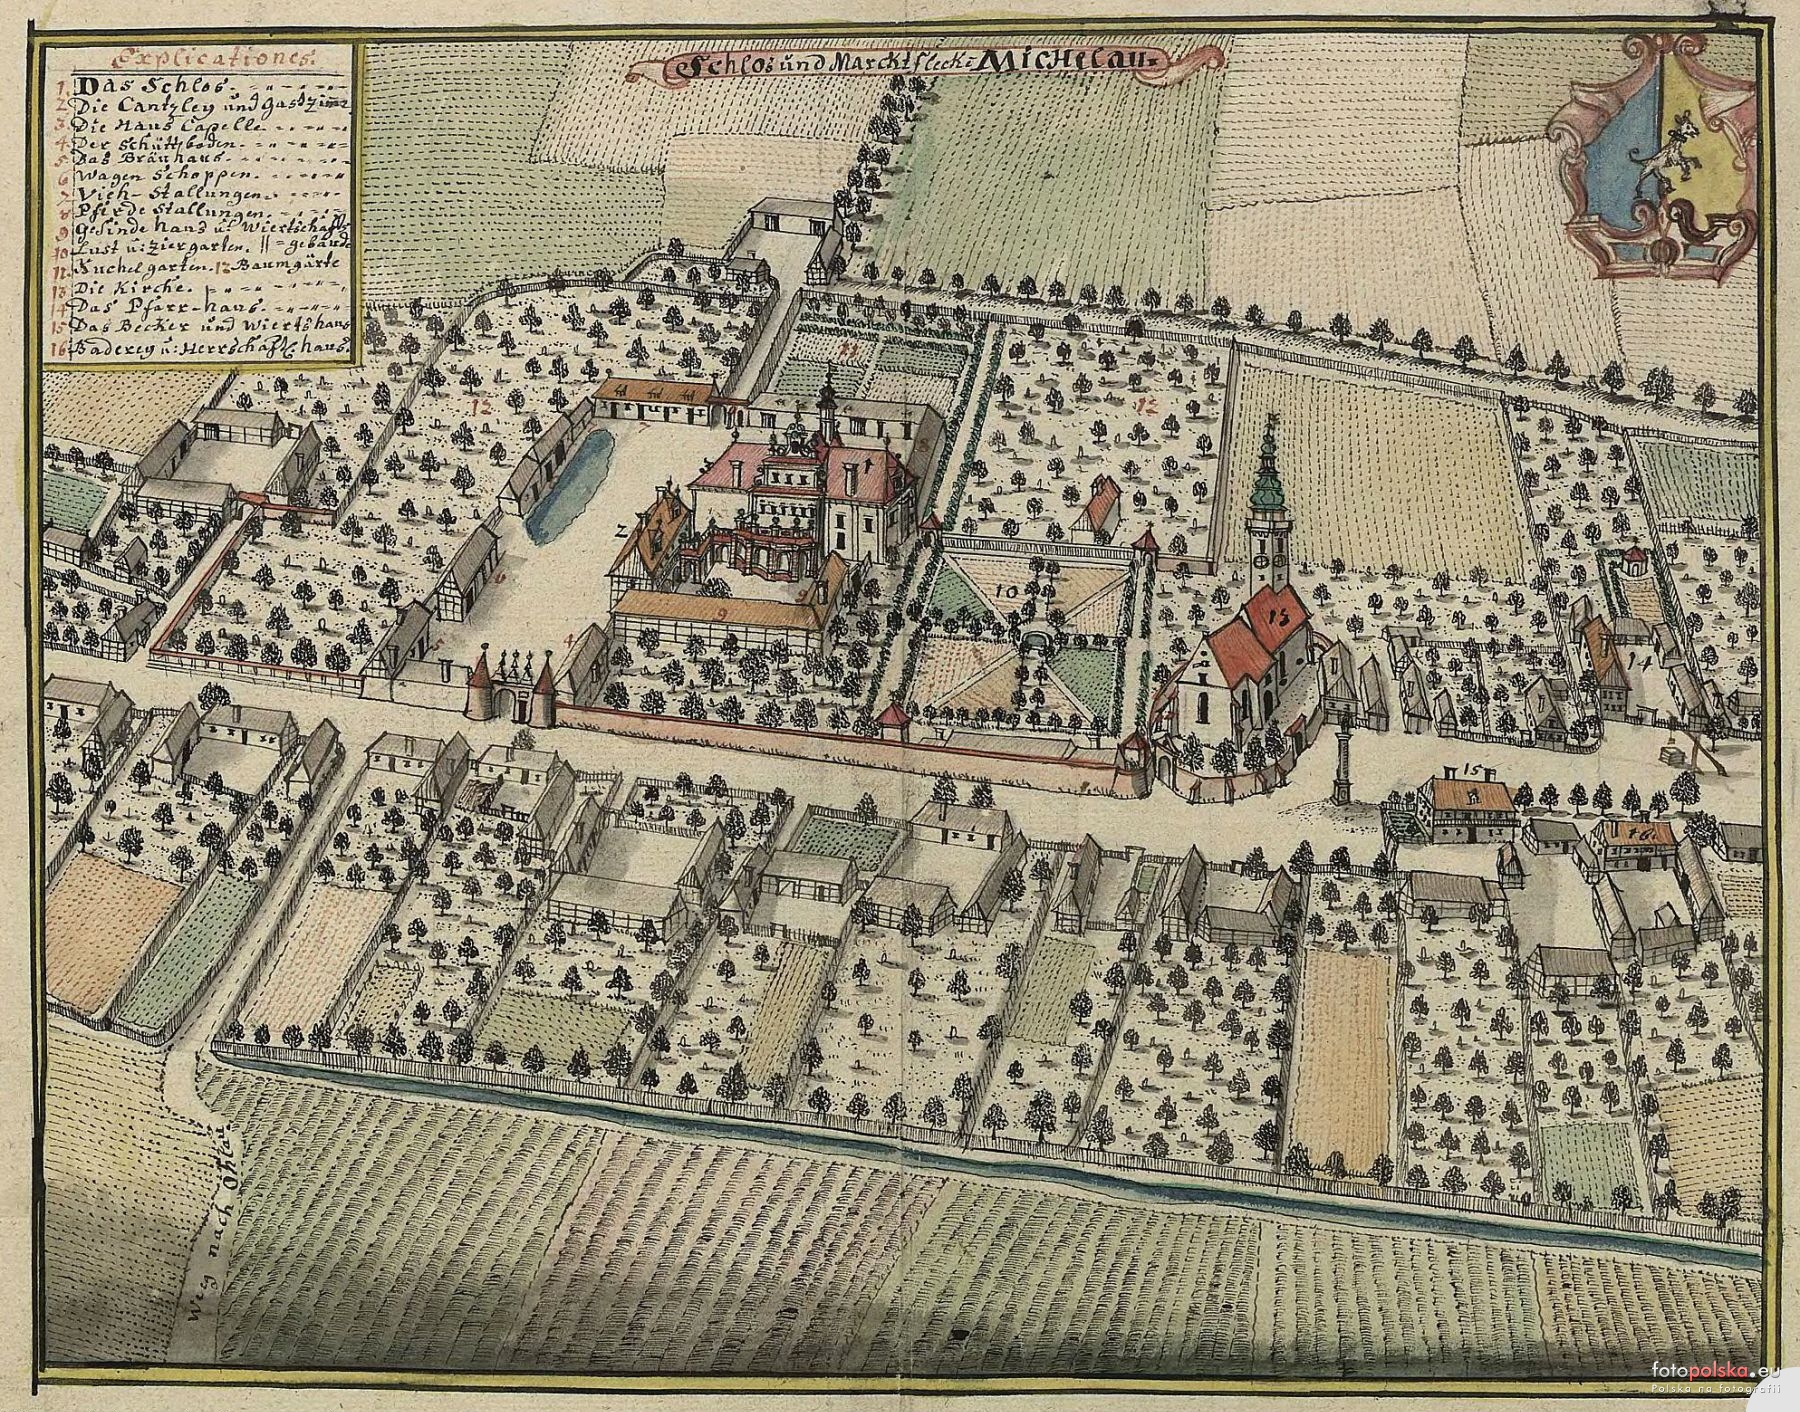 Schlos und Marcktfleck: MICHelau.
Explicationes.
1. Das Schlos.
2 Die Cantzley und gastzimer
3. Die Haus Capelle
4. Der Schüttboden.
5 Das Bräuhaus.
6 Wagen Schoppen.
7 Vieh-Stallungen.
8 Pferde Stallungen.
9 Gesinde haus u: Wiertschaffts
10 Lust u: ziergarten. ||=gebäude
11. Kuchel garten. 12 Baumgärte
13 Die Kirche.
14 Das Pfarr-haus.
15 Das Becker und Wiertshaus
16 Baderey u: Herrschaftl: haus.
11
12
12
1
7
8
2
6
10
9
5
4
13
14
15
16
Weg nach Ohlau
fotopolska.eu
Polska na fotografii